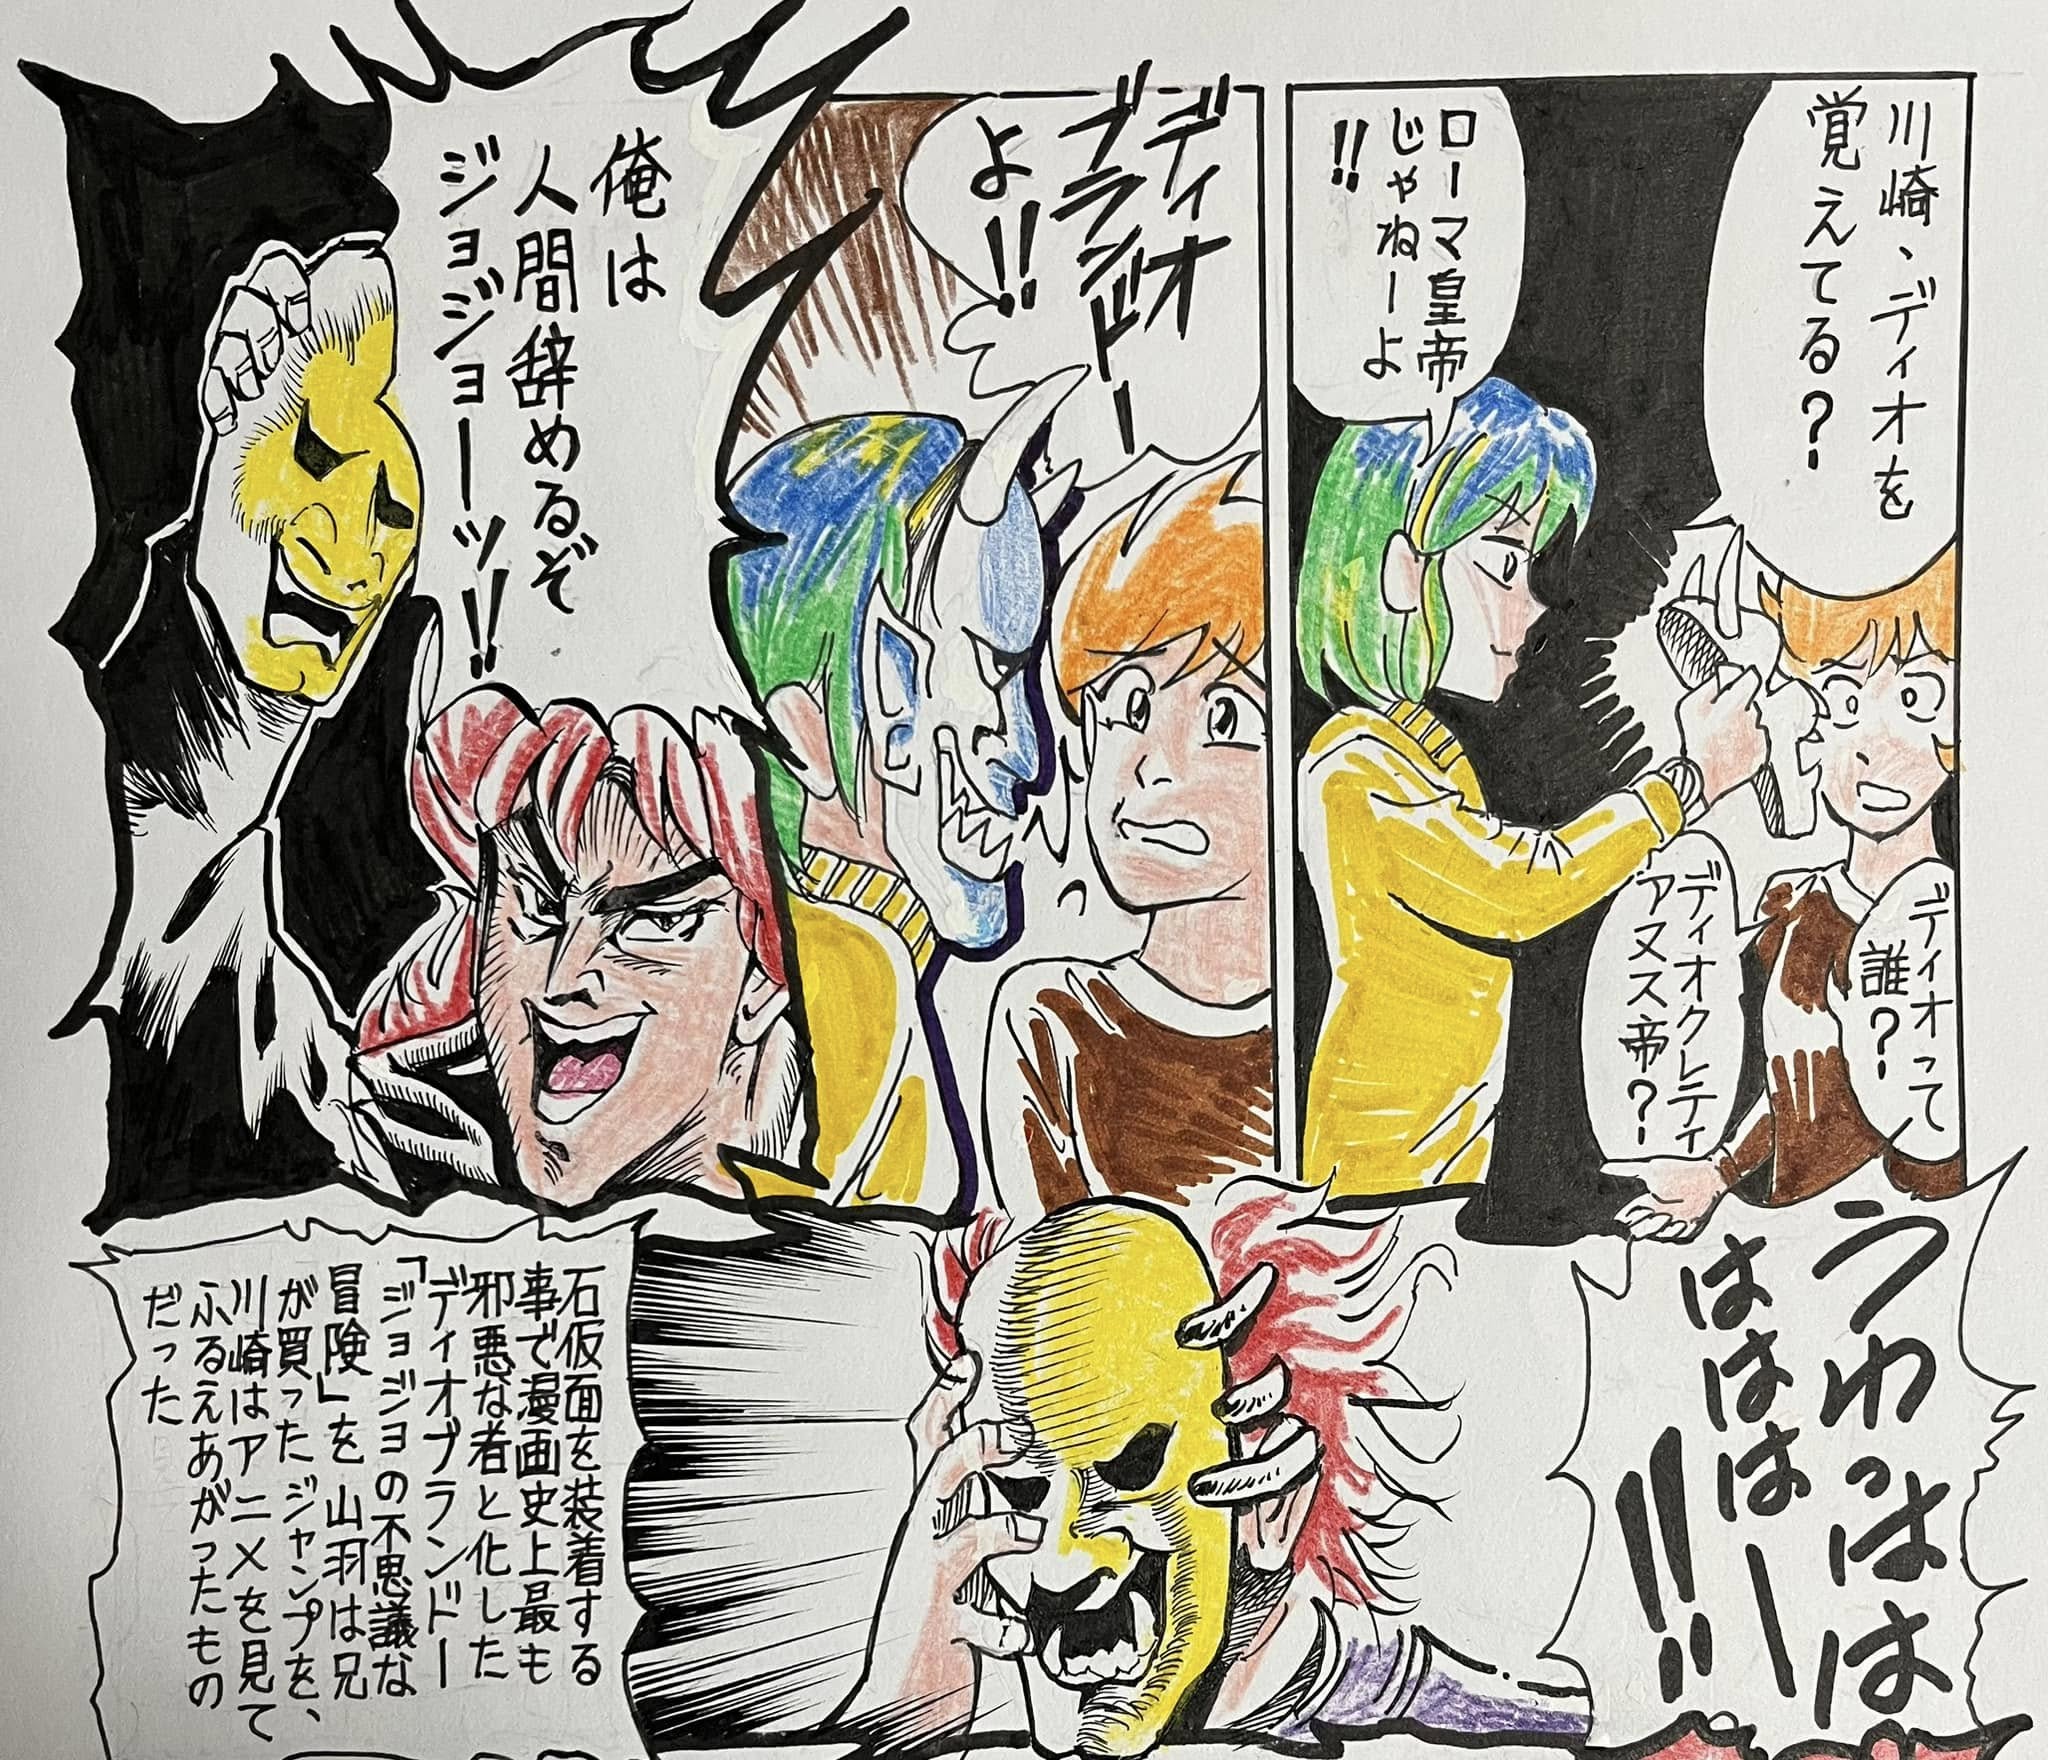 川崎、ディオを
覚えてる？
ディオって
誰？
ディオクレティ
アヌス帝？
ローマ皇帝
じゃねーよ
!!
ディオ
ブランドー
よ!!
俺は
人間辞めるぞ
ジョジョーッ!!
うわっはは
はははー
!!!
石仮面を装着する
事で漫画史上最も
邪悪な者と化した
ディオブランドー
「ジョジョの不思議な
冒険」を山羽は兄
が買ったジャンプを、
川崎はアニメを見て
ふるえあがったもの
だった